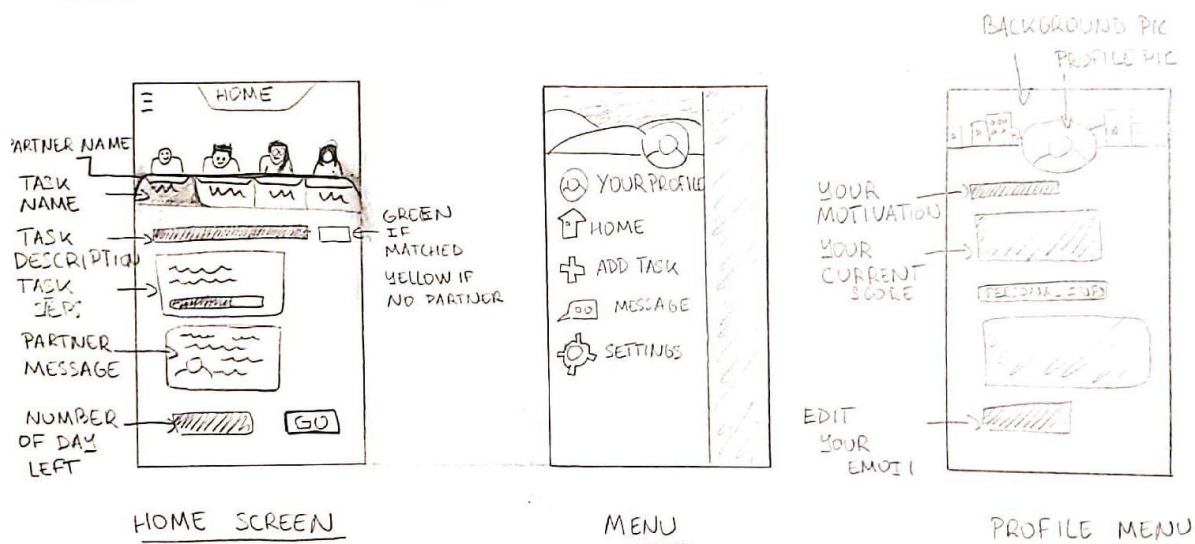 HOME
PARTNER NAME
TASK
NAME
TASK
DESCRIPTION
TASK
PARTNER
MESSAGE
NUMBER
OF DAY
LEFT
GREEN
IF
MATCHED
YELLOW IF
NO PARTNER
GO
HOME SCREEN
YOUR PROFILE
HOME
ADD TASK
MESSAGE
SETTINGS
MENU
BACKGROUND PIC
PROFILE PIC
YOUR
MOTIVATION
YOUR
CURRENT
SCORE
PERSONAL INFO
EDIT
YOUR
EMOJI
PROFILE MENU